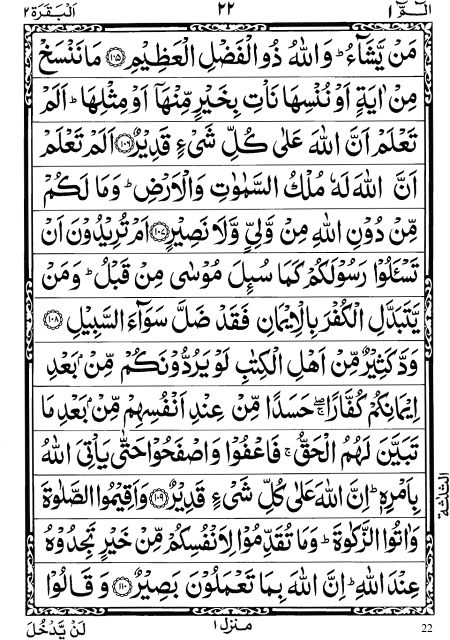 الٓمّٓ ١ ٢٢ اَلْبَقَرَة ٢
مَنْ يَّشَآءُ ؕ وَاللّٰهُ ذُو الْفَضْلِ الْعَظِيْمِ ﴿۱۰۵﴾ مَا نَنْسَخْ
مِنْ اٰيَةٍ اَوْ نُنْسِهَا نَاْتِ بِخَيْرٍ مِّنْهَاۤ اَوْ مِثْلِهَا ؕ اَلَمْ
تَعْلَمْ اَنَّ اللّٰهَ عَلٰى كُلِّ شَىْءٍ قَدِيْرٌ ﴿۱۰۶﴾ اَلَمْ تَعْلَمْ
اَنَّ اللّٰهَ لَهٗ مُلْكُ السَّمٰوٰتِ وَالْاَرْضِ ؕ وَمَا لَكُمْ
مِّنْ دُوْنِ اللّٰهِ مِنْ وَّلِىٍّ وَّلَا نَصِيْرٍ ﴿۱۰۷﴾ اَمْ تُرِيْدُوْنَ اَنْ
تَسْـَٔلُوْا رَسُوْلَكُمْ كَمَا سُىِٕلَ مُوْسٰى مِنْ قَبْلُ ؕ وَمَنْ
يَّتَبَدَّلِ الْكُفْرَ بِالْاِيْمَانِ فَقَدْ ضَلَّ سَوَآءَ السَّبِيْلِ ﴿۱۰۸﴾
وَدَّ كَثِيْرٌ مِّنْ اَهْلِ الْكِتٰبِ لَوْ يَرُدُّوْنَكُمْ مِّنْۢ بَعْدِ
اِيْمَانِكُمْ كُفَّارًا ۖۚ حَسَدًا مِّنْ عِنْدِ اَنْفُسِهِمْ مِّنْۢ بَعْدِ مَا
تَبَيَّنَ لَهُمُ الْحَقُّ ۚ فَاعْفُوْا وَاصْفَحُوْا حَتّٰى يَاْتِىَ اللّٰهُ
بِاَمْرِهٖ ؕ اِنَّ اللّٰهَ عَلٰى كُلِّ شَىْءٍ قَدِيْرٌ ﴿۱۰۹﴾ وَاَقِيْمُوا الصَّلٰوةَ
وَاٰتُوا الزَّكٰوةَ ؕ وَمَا تُقَدِّمُوْا لِاَنْفُسِكُمْ مِّنْ خَيْرٍ تَجِدُوْهُ
عِنْدَ اللّٰهِ ؕ اِنَّ اللّٰهَ بِمَا تَعْمَلُوْنَ بَصِيْرٌ ﴿۱۱۰﴾ وَقَالُوْا
الثلثة
منزل ١
لَنْ يَّدْخُلَ
22